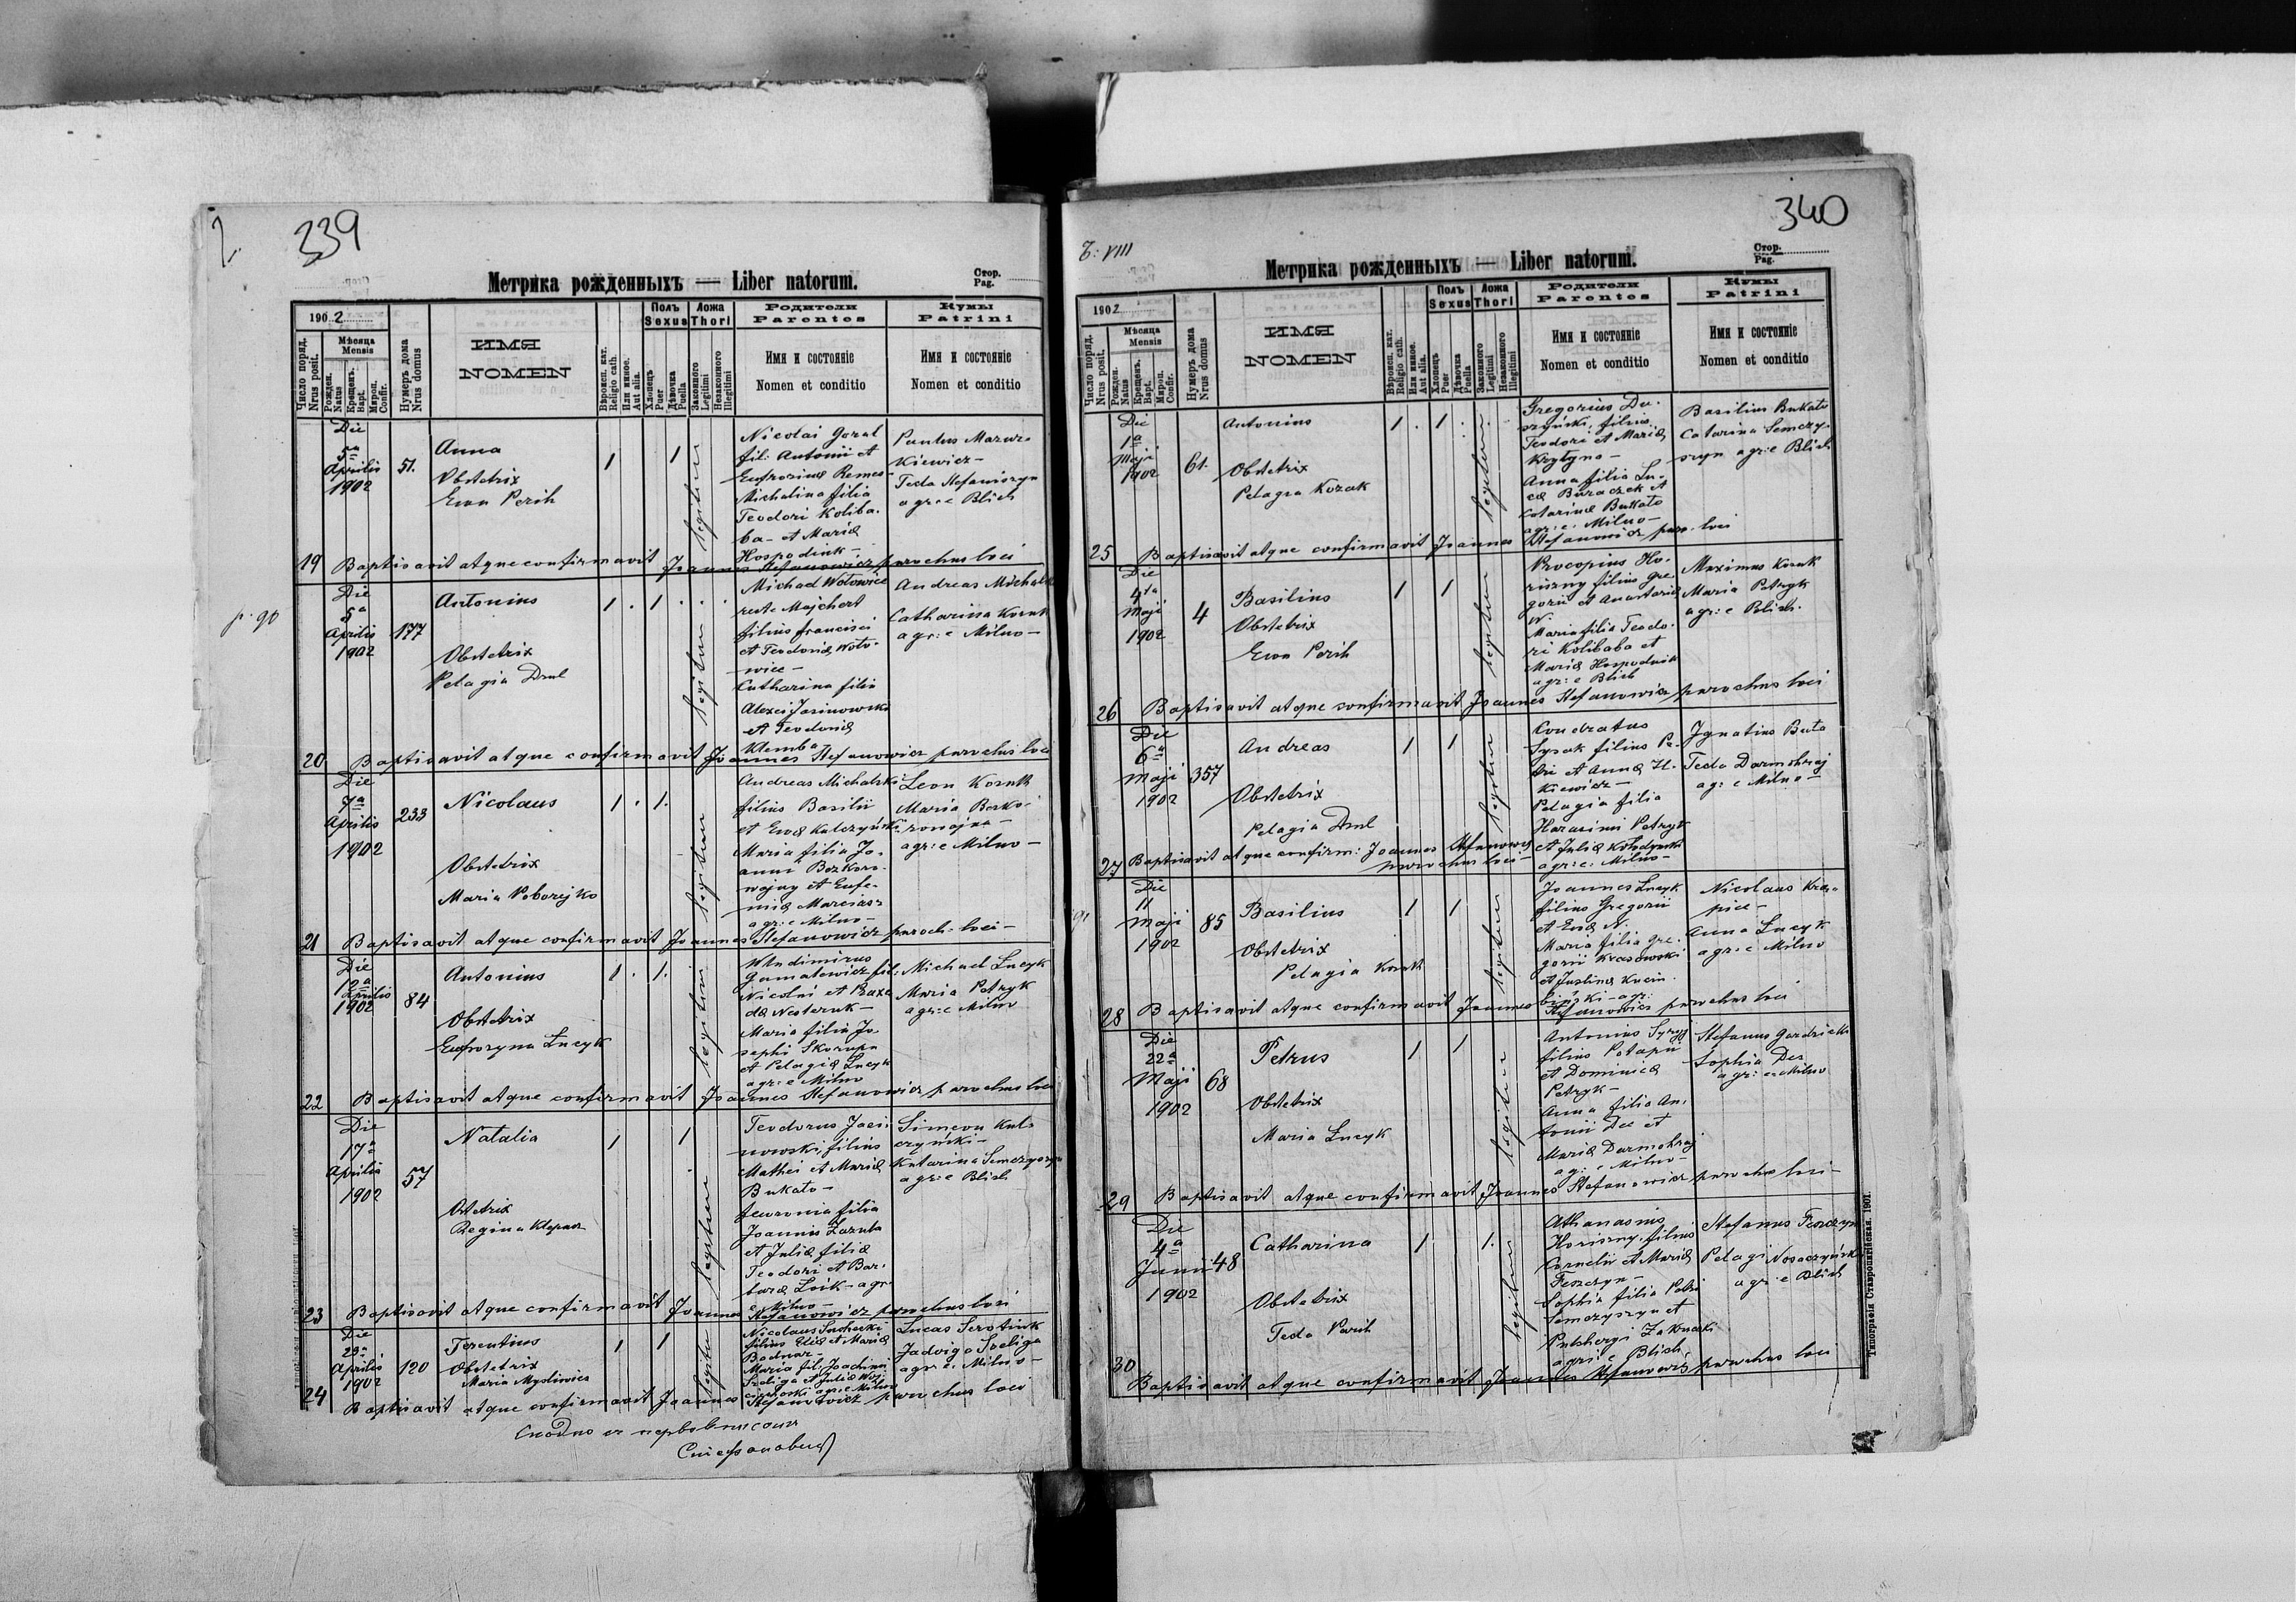 339
Метрика рожденныхъ — Liber natorum.
Стор.
Pag.
1902
Число поряд.
Nrus posit.
Мѣсяца
Mensis
Рожден.
Natus
Крещенъ.
Bapt.
Мѵроп.
Confir.
Нумеръ дома
Nrus domus
ИМЯ
NOMEN
Вѣроисп. кат.
Religio cath.
Или иное.
Aut alia.
Полъ
Sexus
Хлопецъ
Puer
Дѣвочка
Puella
Ложа
Thori
Законного
Legitimi
Незаконного
Illegitimi
Родители
Parentes
Имя и состояніе
Nomen et conditio
Кумы
Patrini
Имя и состояніе
Nomen et conditio
19
Die
5a
Aprilis
1902
51.
Anna
Obstetrix
Ewa Perih
1
1
Nicolai Goral
fil: Antonii et
Michalina filia
Teodori Koliba-
ba- et Mariæ
Hospodiuk-
Paulus Mazur-
kiewicz-
Teda Stefaniszyn
agr:e Blich
Baptisavit atque confirmavit Joannes Stefanowicz parochus loci
p. 90
20
Die
5a
Aprilis
1902
177
Antonius
Obstetrix
Pelagia Drul
1 . 1
Michael Wołowiec
recte Majchert
filius Francisci
et Teodoriæ Woło-
wiec-
Catharina filia
Alexei Jasinowski
et Teodoriæ
Klemba
Andreas Michalski
Catharina Kornak
agr:e Milno-
Baptisavit atque confirmavit Joannes Stefanowicz parochus loci
21
Die
7a
Aprilis
1902
233
Nicolaus
Obstetrix
Maria Poborejko
1 . 1.
Andreas Michalski
filius Basilii
et Evæ Kulczyński
Maria filia Jo-
anni Bezkoro-
wajny et Eufe-
miæ Marcias-
agr:e Milno-
Leon Kornak
Maria Bezko-
rowajna-
agr:e Milno-
Baptisavit atque confirmavit Joannes Stefanowicz paroch: loci-
22
Die
12a
Aprilis
1902
84
Antonius
Obstetrix
Eufrozyna Łucyk
1 . 1.
Wladimirus
Gumatowicz fil:
Nicolai et Paraxe-
dæ Nesteruk-
Maria filia Jo-
sephi Skorupa
et Pelagiæ Łucyk
agr:e Milno
Michael Łucyk
Maria Petryk
agr:e Milno
Baptisavit atque confirmavit Joannes Stefanowicz parochus loci
23
Die
17a
Aprilis
1902
57
Natalia
Obstetrix
Regina Klepacz
1
1
Teodorus Jasi-
nowski, filius
Mathei et Mariæ
Bukato-
Fewronia filia
Joannis Zaruba
et Juliæ filiæ
Teodori et Bar-
baræ Łoik- agr-
e Milno-
Simeon Kul-
czyński-
Katarina Semczyszyn
agr:e Blich
Baptisavit atque confirmavit Joannes Stefanowicz parochus loci
24
Die
29a
Aprilis
1902
120
Terentius
Obstetrix
Maria Mysliwiec
1
1
Nicolaus Suchecki
filius Eliæ et Mariæ
Bodnar-
Maria fil: Joachimi
Szeliga et Juliæ Woj-
ciechoski agr:e Milno
Lucas Serotiuk
Jadviga Szeliga
agr:e Milno-
Baptisavit atque confirmavit Joannes Stefanowicz parochus loci
340
Метрика рожденныхъ — Liber natorum.
Стор.
Pag.
1902
Число поряд.
Nrus posit.
Мѣсяца
Mensis
Рожден.
Natus
Крещенъ.
Bapt.
Мѵроп.
Confir.
Нумеръ дома
Nrus domus
ИМЯ
NOMEN
Вѣроисп. кат.
Religio cath.
Или иное.
Aut alia.
Полъ
Sexus
Хлопецъ
Puer
Дѣвочка
Puella
Ложа
Thori
Законного
Legitimi
Незаконного
Illegitimi
Родители
Parentes
Имя и состояніе
Nomen et conditio
Кумы
Patrini
Имя и состояніе
Nomen et conditio
25
Die
1a
Maji
1902
61.
Antonius
Obstetrix
Pelagia Kozak
1 . 1 .
Gregorius Du-
szyński, filius
Teodori et Mariæ
Krytyna-
Anna filia Lu-
cæ Buraczek et
Catarinæ Bukato
agr:e Milno-
Basilius Bukato
Catarina Semczy-
szyn agr:e Blich
Baptisavit atque confirmavit Joannes Stefanowicz paro: loci
26
Die
4ta
Maji
1902
4
Basilius
Obstetrix
Ewa Perih
1
1
Procopius Ho-
riszny filius Gre-
gorii et Anastasiæ
N.
Maria filia Teodo-
ri Kolibaba et
Mariæ Hospodiuk
agr:e Blich
Maximus Kozak
Maria Petryk
agr:e Blich.
Baptisavit atque confirmavit Joannes Stefanowicz parochus loci
27
Die
6a
Maji
1902
357
Andreas
Obstetrix
Pelagia Drul
1
1
Condratus
Sysak filius Pe-
tri et Annæ H.-
kiewicz-
Pelagia filia
Harasimi Petryk
et Juliæ Kołodyński
agr:e Milno-
Ignatius Buta
Teda Darmohraj
agr:e Milno-
Baptisavit atque confirm: Joannes Stefanowicz
parochus loci-
28
Die
11
Maji
1902
85
Basilius
Obstetrix
Pelagia Kornak
1
1
Joannes Łucyk
filius Gregorii
et Evæ N.
Maria filia Gre-
gorii Krasowski
et Justinæ Kucin-
biński-agr:
Nicolaus Kra-
piec-
Anna Łucyk
agr:e Milno
Baptisavit atque confirmavit Joannes Stefanowicz parochus loci
29
Die
22a
Maji
1902
68
Petrus
Obstetrix
Maria Łucyk
1
1
filius Potapii
et Dominicæ
Petryk-
Anna filia An-
tonii Dec et
Mariæ Darmohraj
agr:e Milno-
Stefanus Gardzicki
Sophia Dec
agr:e Milno
Baptisavit atque confirmavit Joannes Stefanowicz parochus loci-
30
Die
4a
Junii
1902
48
Catharina
Obstetrix
Teda Perih
1
1.
Athanasius
Horiszny, filius
Cornelii et Mariæ
Feszczyn-
Sophia filia Petri
Semczyszyn et
Pulcheryi Zakrucki
agr:e Blich
Stefanus Feszczyn
Pelagi Nosaczyński
agr:e Blich
Baptisavit atque confirmavit Joannes Stefanowicz parochus loci
Типографія Ставропигійская. 1901.